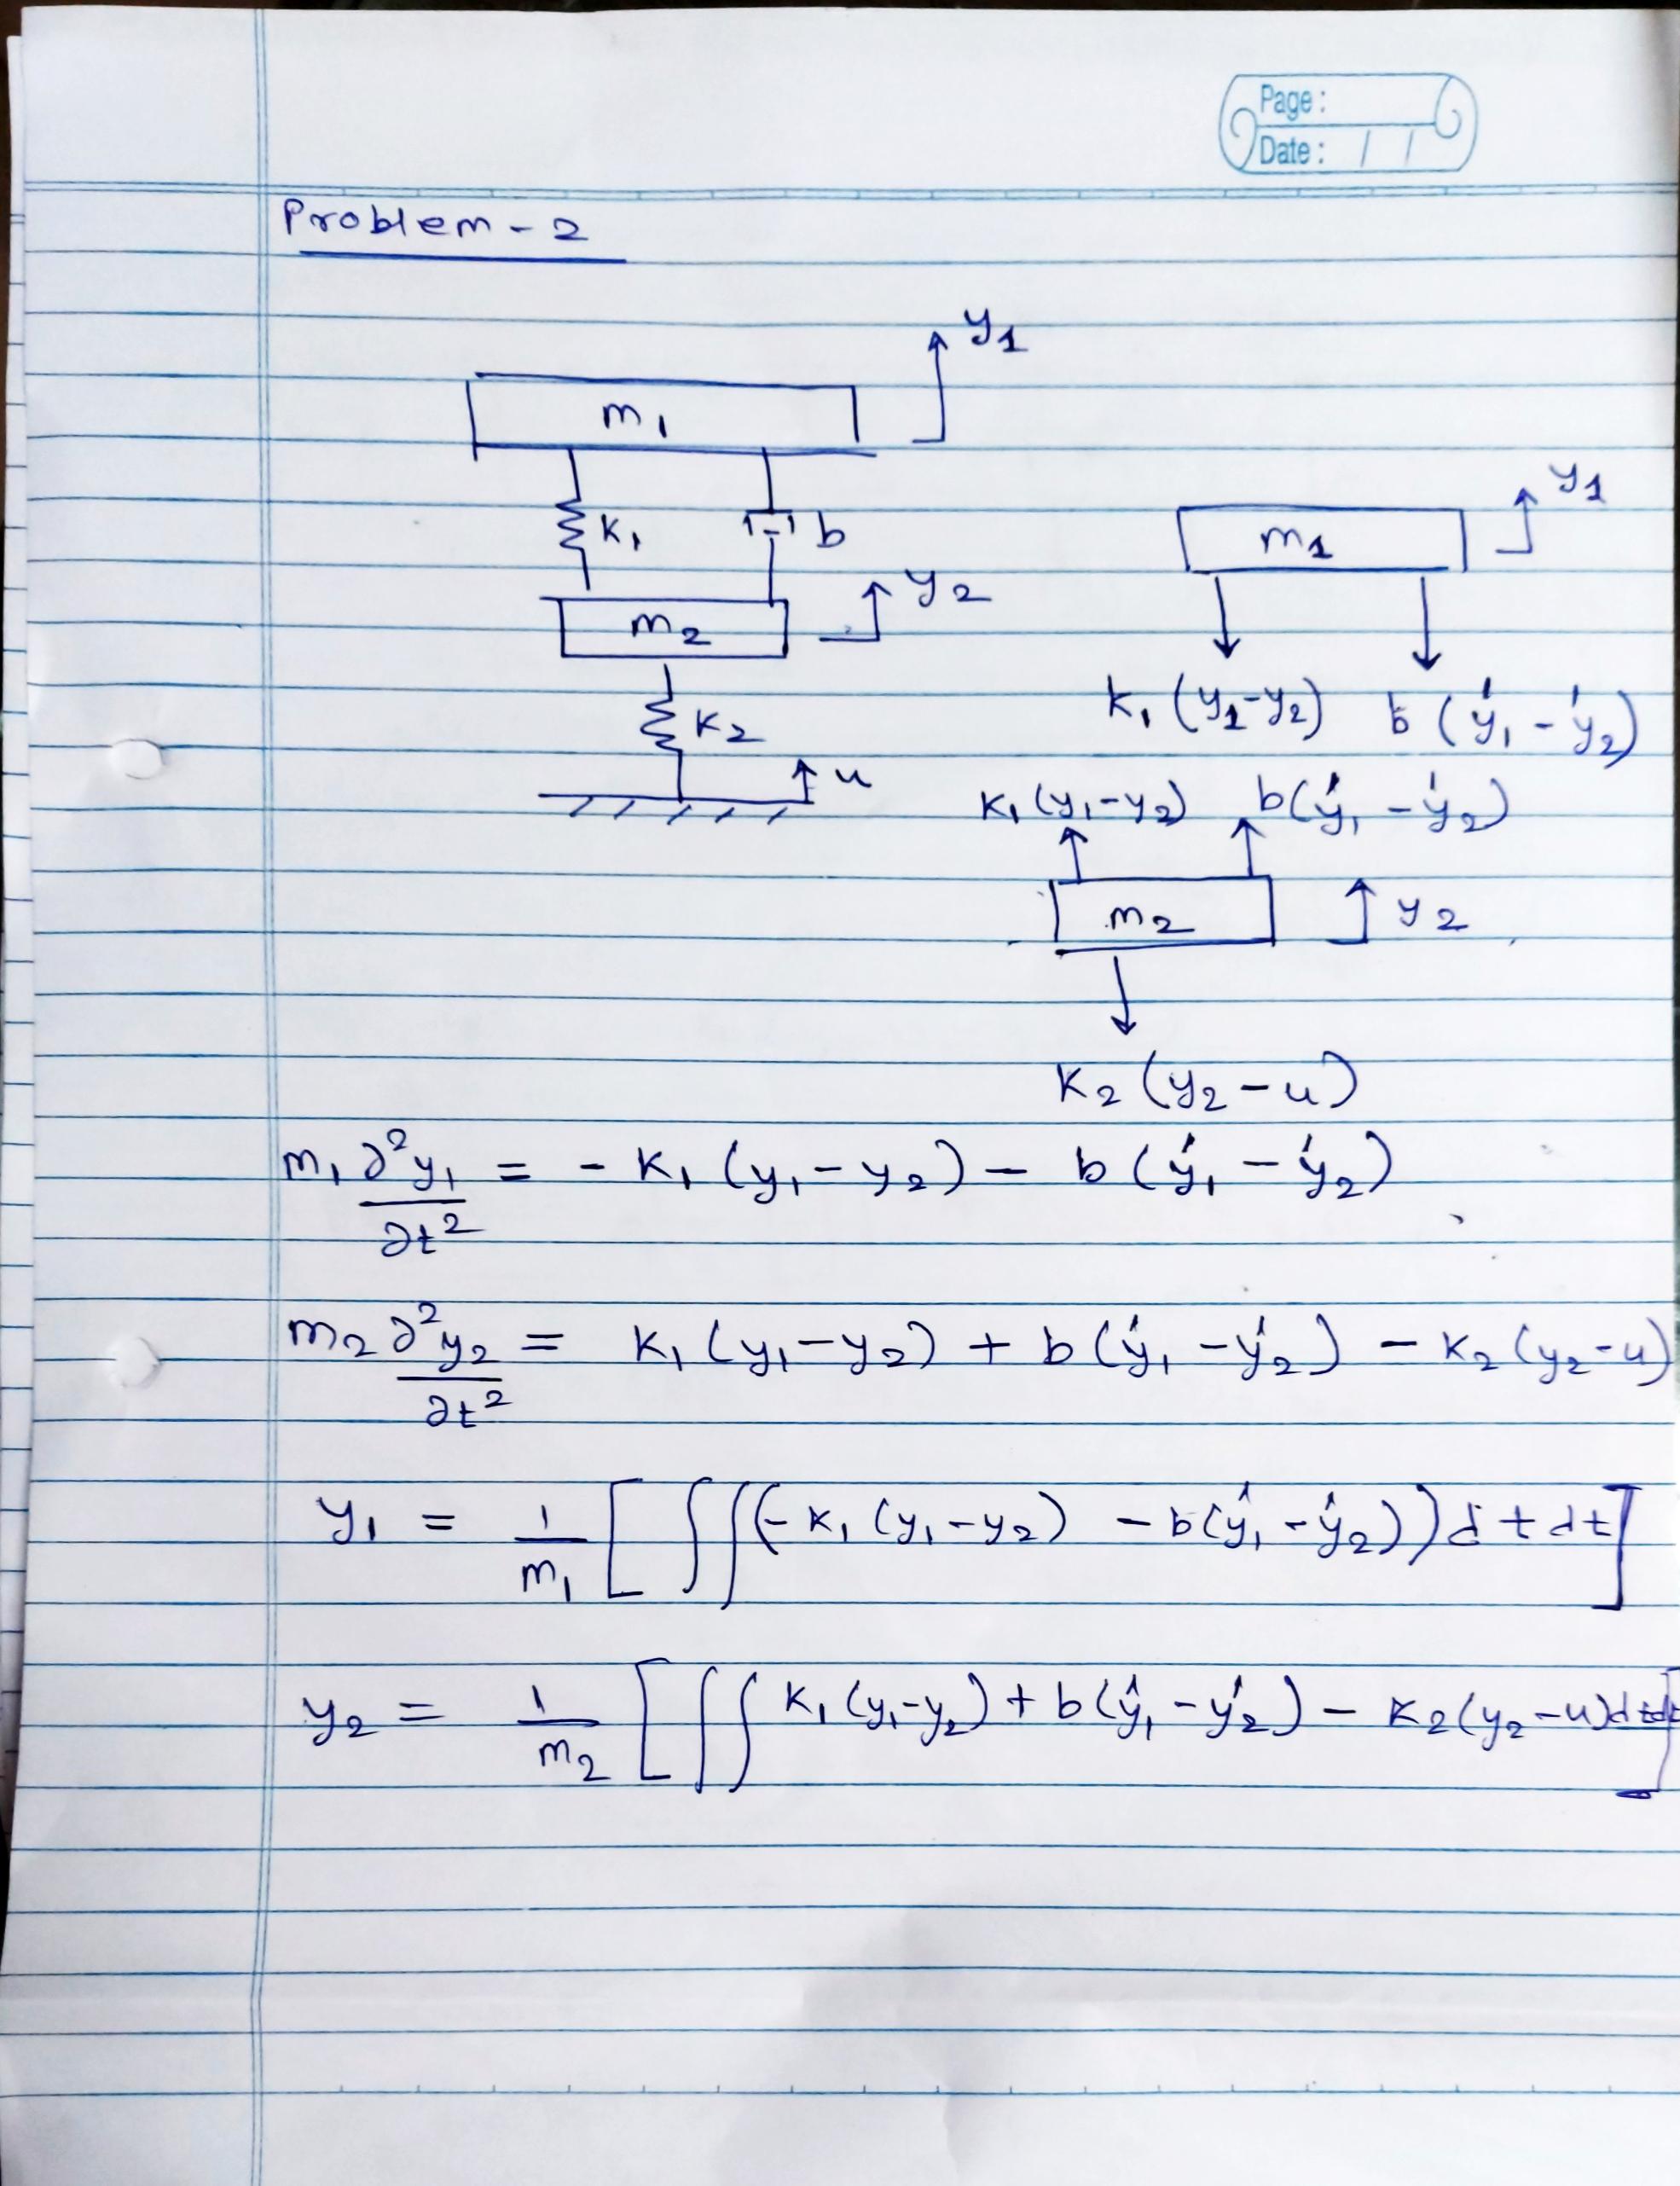 Page :
Date : / /
Problem - 2
y1
m1
y1
k1 b
m1
y2
m2
k1 (y1-y2) b (ẏ1 - ẏ2)
k2
u
k1 (y1-y2) b(ẏ1 - ẏ2)
m2 y2
k2 (y2-u)
m1 ∂²y1/∂t² = - k1 (y1-y2) - b (ẏ1 - ẏ2)
m2 ∂²y2/∂t² = k1 (y1-y2) + b (ẏ1 - ẏ2) - k2 (y2-u)
y1 = 1/m1 [ ∫∫(-k1 (y1-y2) - b(ẏ1 - ẏ2)) dt dt ]
y2 = 1/m2 [ ∫∫ k1 (y1-y2) + b(ẏ1 - ẏ2) - k2(y2-u)dtdt ]